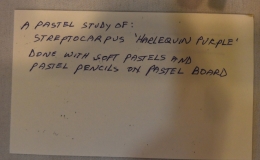 A PASTEL STUDY OF:
STREPTOCARPUS 'HARLEQUIN PURPLE'
DONE WITH SOFT PASTELS AND
PASTEL PENCILS ON PASTEL BOARD